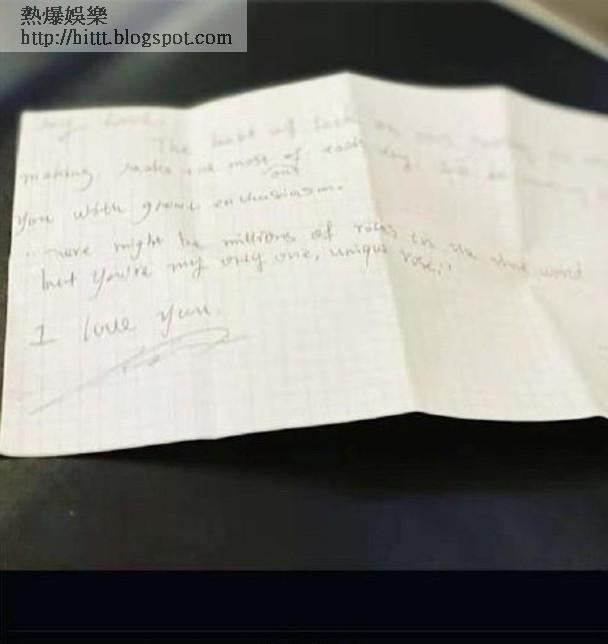 熱爆娛樂
http://hittt.blogspot.com
my love
The best of luck on
making. make the most of each day
out
you with great enthusiasm.
"There might be millions of roses in the whole world
but you're my only one, unique rose."
I love you.